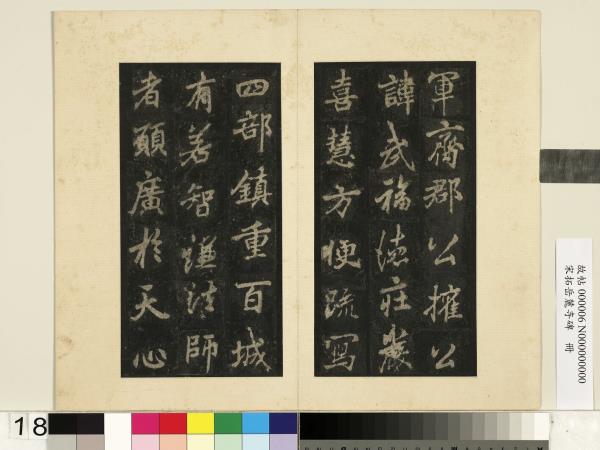 軍齊郡公權公
諱武福德莊嚴
喜慧方便疏寫
四部鎮重百城
有若智謙法師
者願廣於天心
故帖 000006 N000000000
宋拓岳麓寺碑 冊
18